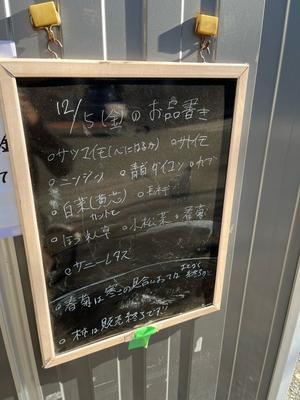 12/5(金)のお品書き
○サツマイモ(べにはるか) ○サトイモ
○ニンジン ○青首ダイコン ○カブ
○白菜(黄芯) ○長ネギ
○ほうれん草 ○小松菜 ○春菊
○サニーレタス
○春菊は寒さの具合によっては
終り
○柿は販売終了です!!
金
て